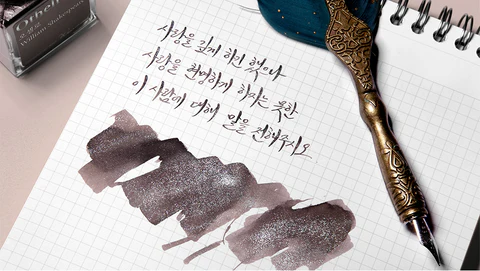 Othello
William Shakespeare
사랑을 깊게 하진 했으나
사랑을 현명하게 하지는 못한
이 사람에 대해 말을 전해주시오